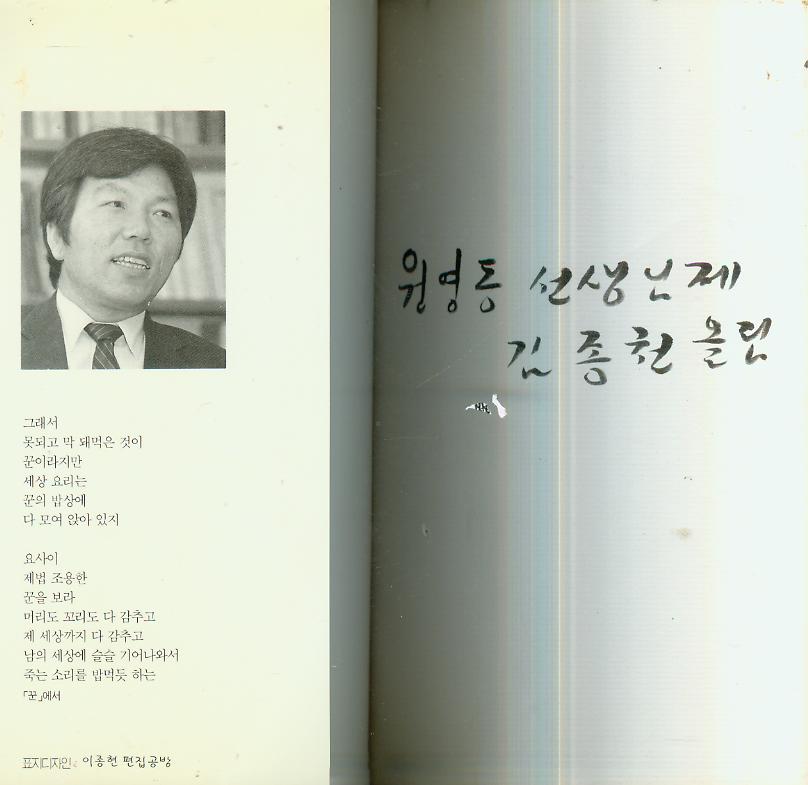 그래서
못되고 막 돼먹은 것이
꾼이라지만
세상 요리는
꾼의 밥상에
다 모여 앉아 있지
요사이
제법 조용한
꾼을 보라
머리도 꼬리도 다 감추고
제 세상까지 다 감추고
남의 세상에 슬슬 기어나와서
죽는 소리를 밥먹듯 하는
「꾼」에서
표지디자인 이종헌 편집공방
원영동 선생님께
김종천 올림